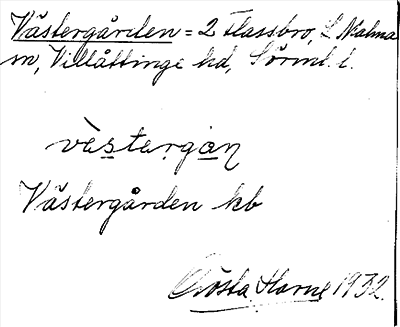 Västergården = 2 Flassbro, L Malma
sn, Villåttinge hd, Sörml. l.
vàstərgàn
Västergården kb
Gösta Harne 1932.